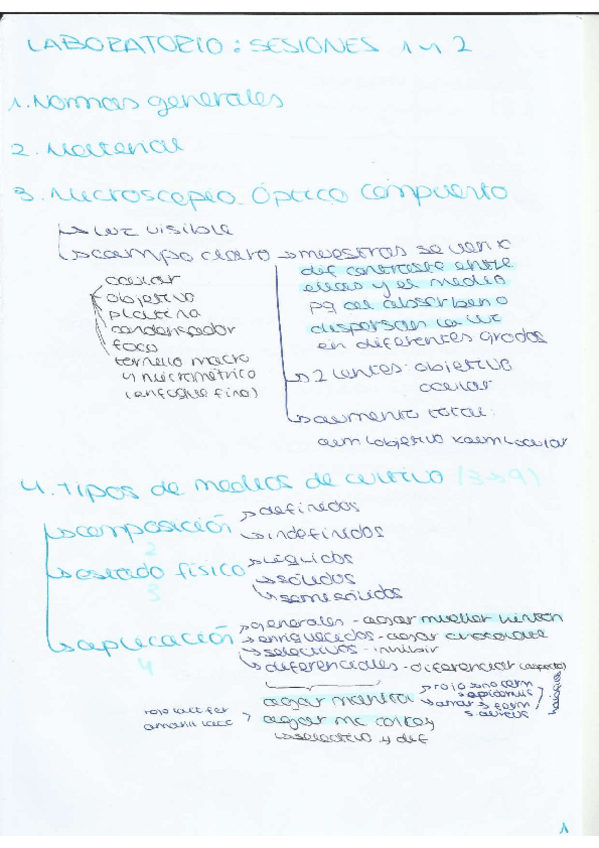 LABORATORIO: SESIONES 1 y 2
1. Normas generales
2. Material
3. Microscopio Óptico Compuerto
↳ luz visible
↳ campo claro → muestras se ven x
dif contraste entre
ellas y el medio
pq al absorben o
dispersan la luz
en diferentes grados
ocular
objetivo
platina
condensador
foco
tornillo macro
y micrométrico
(enfoque fino)
↳ 2 lentes: objetivo
ocular
↳ aumento total:
aum (objetivo x aum ocular
4. Tipos de medios de cultivo (3→9)
↳ composición
2
→ definidos
↳ indefinidos
↳ estado físico
3
→ líquidos
↳ sólidos
↳ semisólidos
↳ aplicación
4
→ generales - agar mueller hinton
→ enriquecidos - agar chocolate
↳ selectivos - inhibir
↳ diferenciales - diferenciar (aspecto)
agar manita
→ rojo → no ferm
s epidermis
→ amar → ferm
s aureus
rojo lact fer
amarill lacc
agar mc conkey
↳ selectivo y dif
1